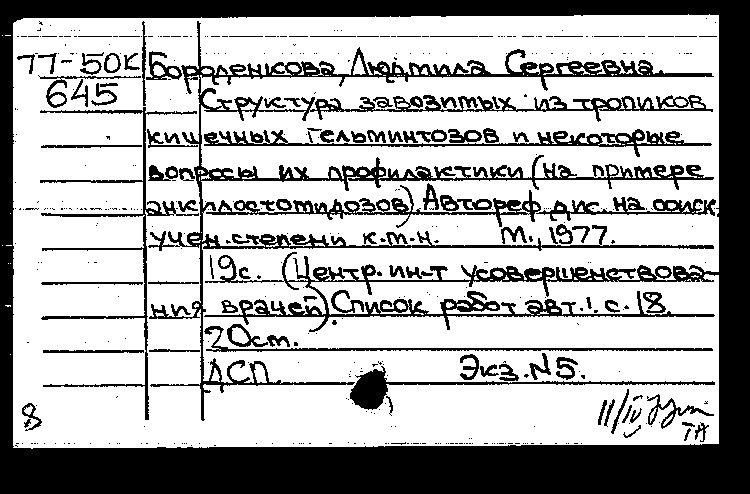 77-50к Бороденкова, Людмила Сергеевна.
645 Структура завозимых из тропиков
кишечных гельминтозов и некоторые
вопросы их профилактики (на примере
анкилостомидозов). Автореф. дис. на соиск.
учен. степени к.м.н. М., 1977.
19с. (Центр. ин-т усовершенствова-
ния врачей). Список работ авт.: с. 18.
20см.
ДСП. Экз. №5.
8 11/IV